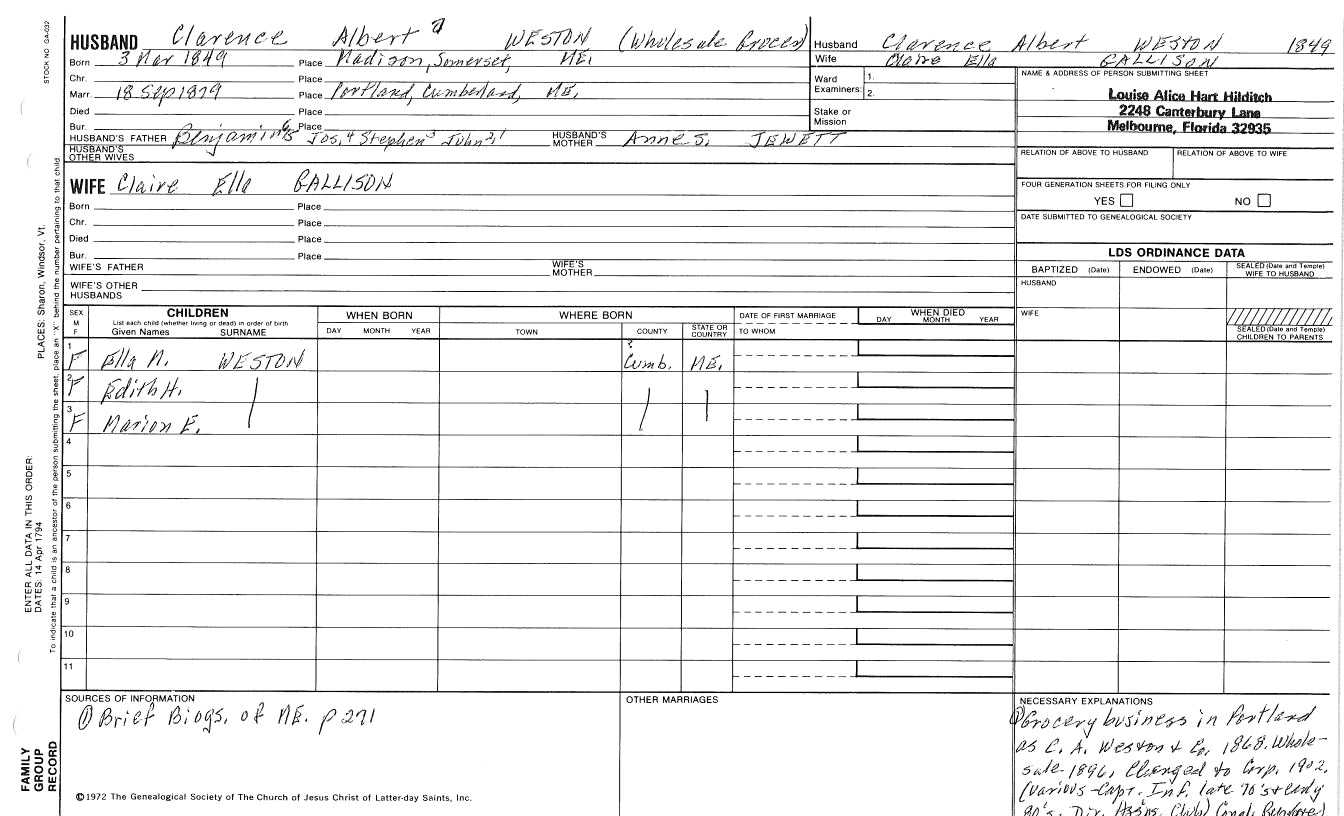 STOCK NO. GA-032
HUSBAND Clarence Albert 7 WESTON (Wholesale Grocer)
Born 3 Mar 1849 Place Madison, Somerset, ME.
Chr. Place
Marr. 18 Sep 1879 Place Portland, Cumberland, ME.
Died Place
Bur. Place
HUSBAND'S FATHER Benjamin 6 5 Jos, 4 Stephen 3 John 2, 1 HUSBAND'S MOTHER Anne S. JEWETT
HUSBAND'S OTHER WIVES
WIFE Claire Ella GALLISON
Born Place
Chr. Place
Died Place
Bur. Place
WIFE'S FATHER WIFE'S MOTHER
WIFE'S OTHER HUSBANDS
Husband Clarence Albert WESTON 1849
Wife Claire Ella GALLISON
Ward Examiners: 1. 2.
Stake or Mission
NAME & ADDRESS OF PERSON SUBMITTING SHEET
Louise Alice Hart Hilditch
2248 Canterbury Lane
Melbourne, Florida 32935
RELATION OF ABOVE TO HUSBAND RELATION OF ABOVE TO WIFE
FOUR GENERATION SHEETS FOR FILING ONLY
YES NO
DATE SUBMITTED TO GENEALOGICAL SOCIETY
LDS ORDINANCE DATA
BAPTIZED (Date) ENDOWED (Date) SEALED (Date and Temple) WIFE TO HUSBAND
HUSBAND
WIFE
SEALED (Date and Temple) CHILDREN TO PARENTS
SEX M F
CHILDREN
List each child (whether living or dead) in order of birth
Given Names SURNAME
WHEN BORN
DAY MONTH YEAR
WHERE BORN
TOWN COUNTY STATE OR COUNTRY
DATE OF FIRST MARRIAGE
TO WHOM
WHEN DIED
DAY MONTH YEAR
1 F Ella M. WESTON ? Cumb. ME.
2 F Edith H.
3 F Marion E.
4
5
6
7
8
9
10
11
SOURCES OF INFORMATION
① Brief Biogs. of ME. p 271
OTHER MARRIAGES
NECESSARY EXPLANATIONS
① Grocery business in Portland
as C. A. Weston & Co, 1868. Whole-
sale 1896, Changed to Corp. 1902.
(various - Capt. Inf. late 70's & early
80's, Dir. Assns. Club)
©1972 The Genealogical Society of The Church of Jesus Christ of Latter-day Saints, Inc.
FAMILY GROUP RECORD
ENTER ALL DATA IN THIS ORDER:
DATES: 14 Apr 1794
PLACES: Sharon, Windsor, Vt.
To indicate that a child is an ancestor of the person submitting the sheet, place an "X" behind the number pertaining to that child.